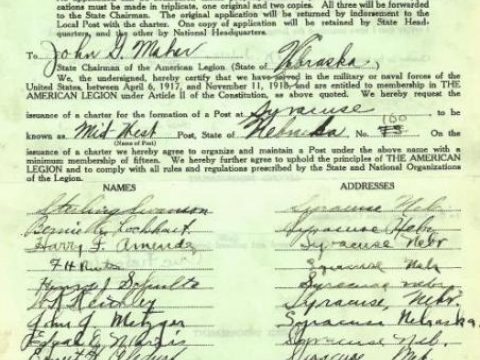 cations must be made in triplicate, one original and two copies. All three will be forwarded
to the State Chairman. The original application will be returned by indorsement to the
Local Post with the charter. One copy of application will be retained by State Head-
quarters, and the other by National Headquarters.
To John G. Maher
State Chairman of the American Legion (State of Nebraska.)
We, the undersigned, hereby certify that we have served in the military or naval forces of the
United States, between April 6, 1917, and November 11, 1918, and are entitled to membership in THE
AMERICAN LEGION under Article II of the Constitution, as above quoted. We hereby request the
issuance of a charter for the formation of a Post at Syracuse to be
160
known as Mid West Post, State of Nebraska No. 75 On the
(Name of Post)
issuance of this charter we hereby agree to organize and maintain a Post under the above name with a
minimum membership of fifteen. We hereby further agree to uphold the principles of THE AMERICAN
LEGION and to comply with all rules and regulations prescribed by the State and National Organizations
of the Legion.
NAMES ADDRESSES
Sterling Swanson Syracuse Nebr
Bernie W. Lockhart Syracuse Nebr
Harry F. Amende Syracuse Nebr
F H Syracuse Nebr
J Schultz Syracuse Nebr
Syracuse, Nebr.
John J. Metzger Syracuse Nebraska
E. Norris Syracuse Neb.
Syracuse